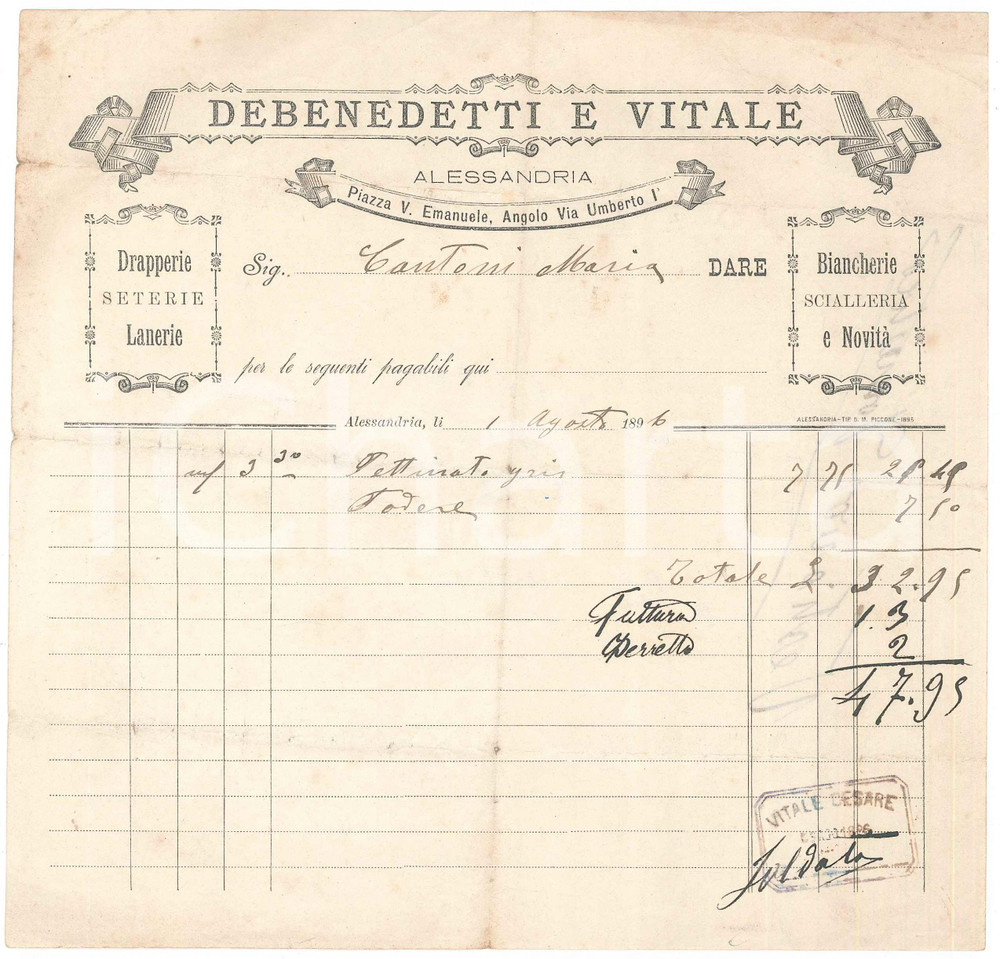 DEBENEDETTI E VITALE
ALESSANDRIA
Piazza V. Emanuele, Angolo Via Umberto I°
Drapperie
SETERIE
Lanerie
Sig. Cantoni Maria DARE
Biancherie
SCIALLERIA
e Novità
per le seguenti pagabili qui
Alessandria, li 1 Agosto 1896
ALESSANDRIA-TIP. G. M. PICCONE-1895
m/ 3 30 Pettinato gris 7 75 25 45
Fodere 7 50
Totale £. 32.95
Fattura 13
Berretto 2
47.95
VITALE CESARE
1896
Saldato